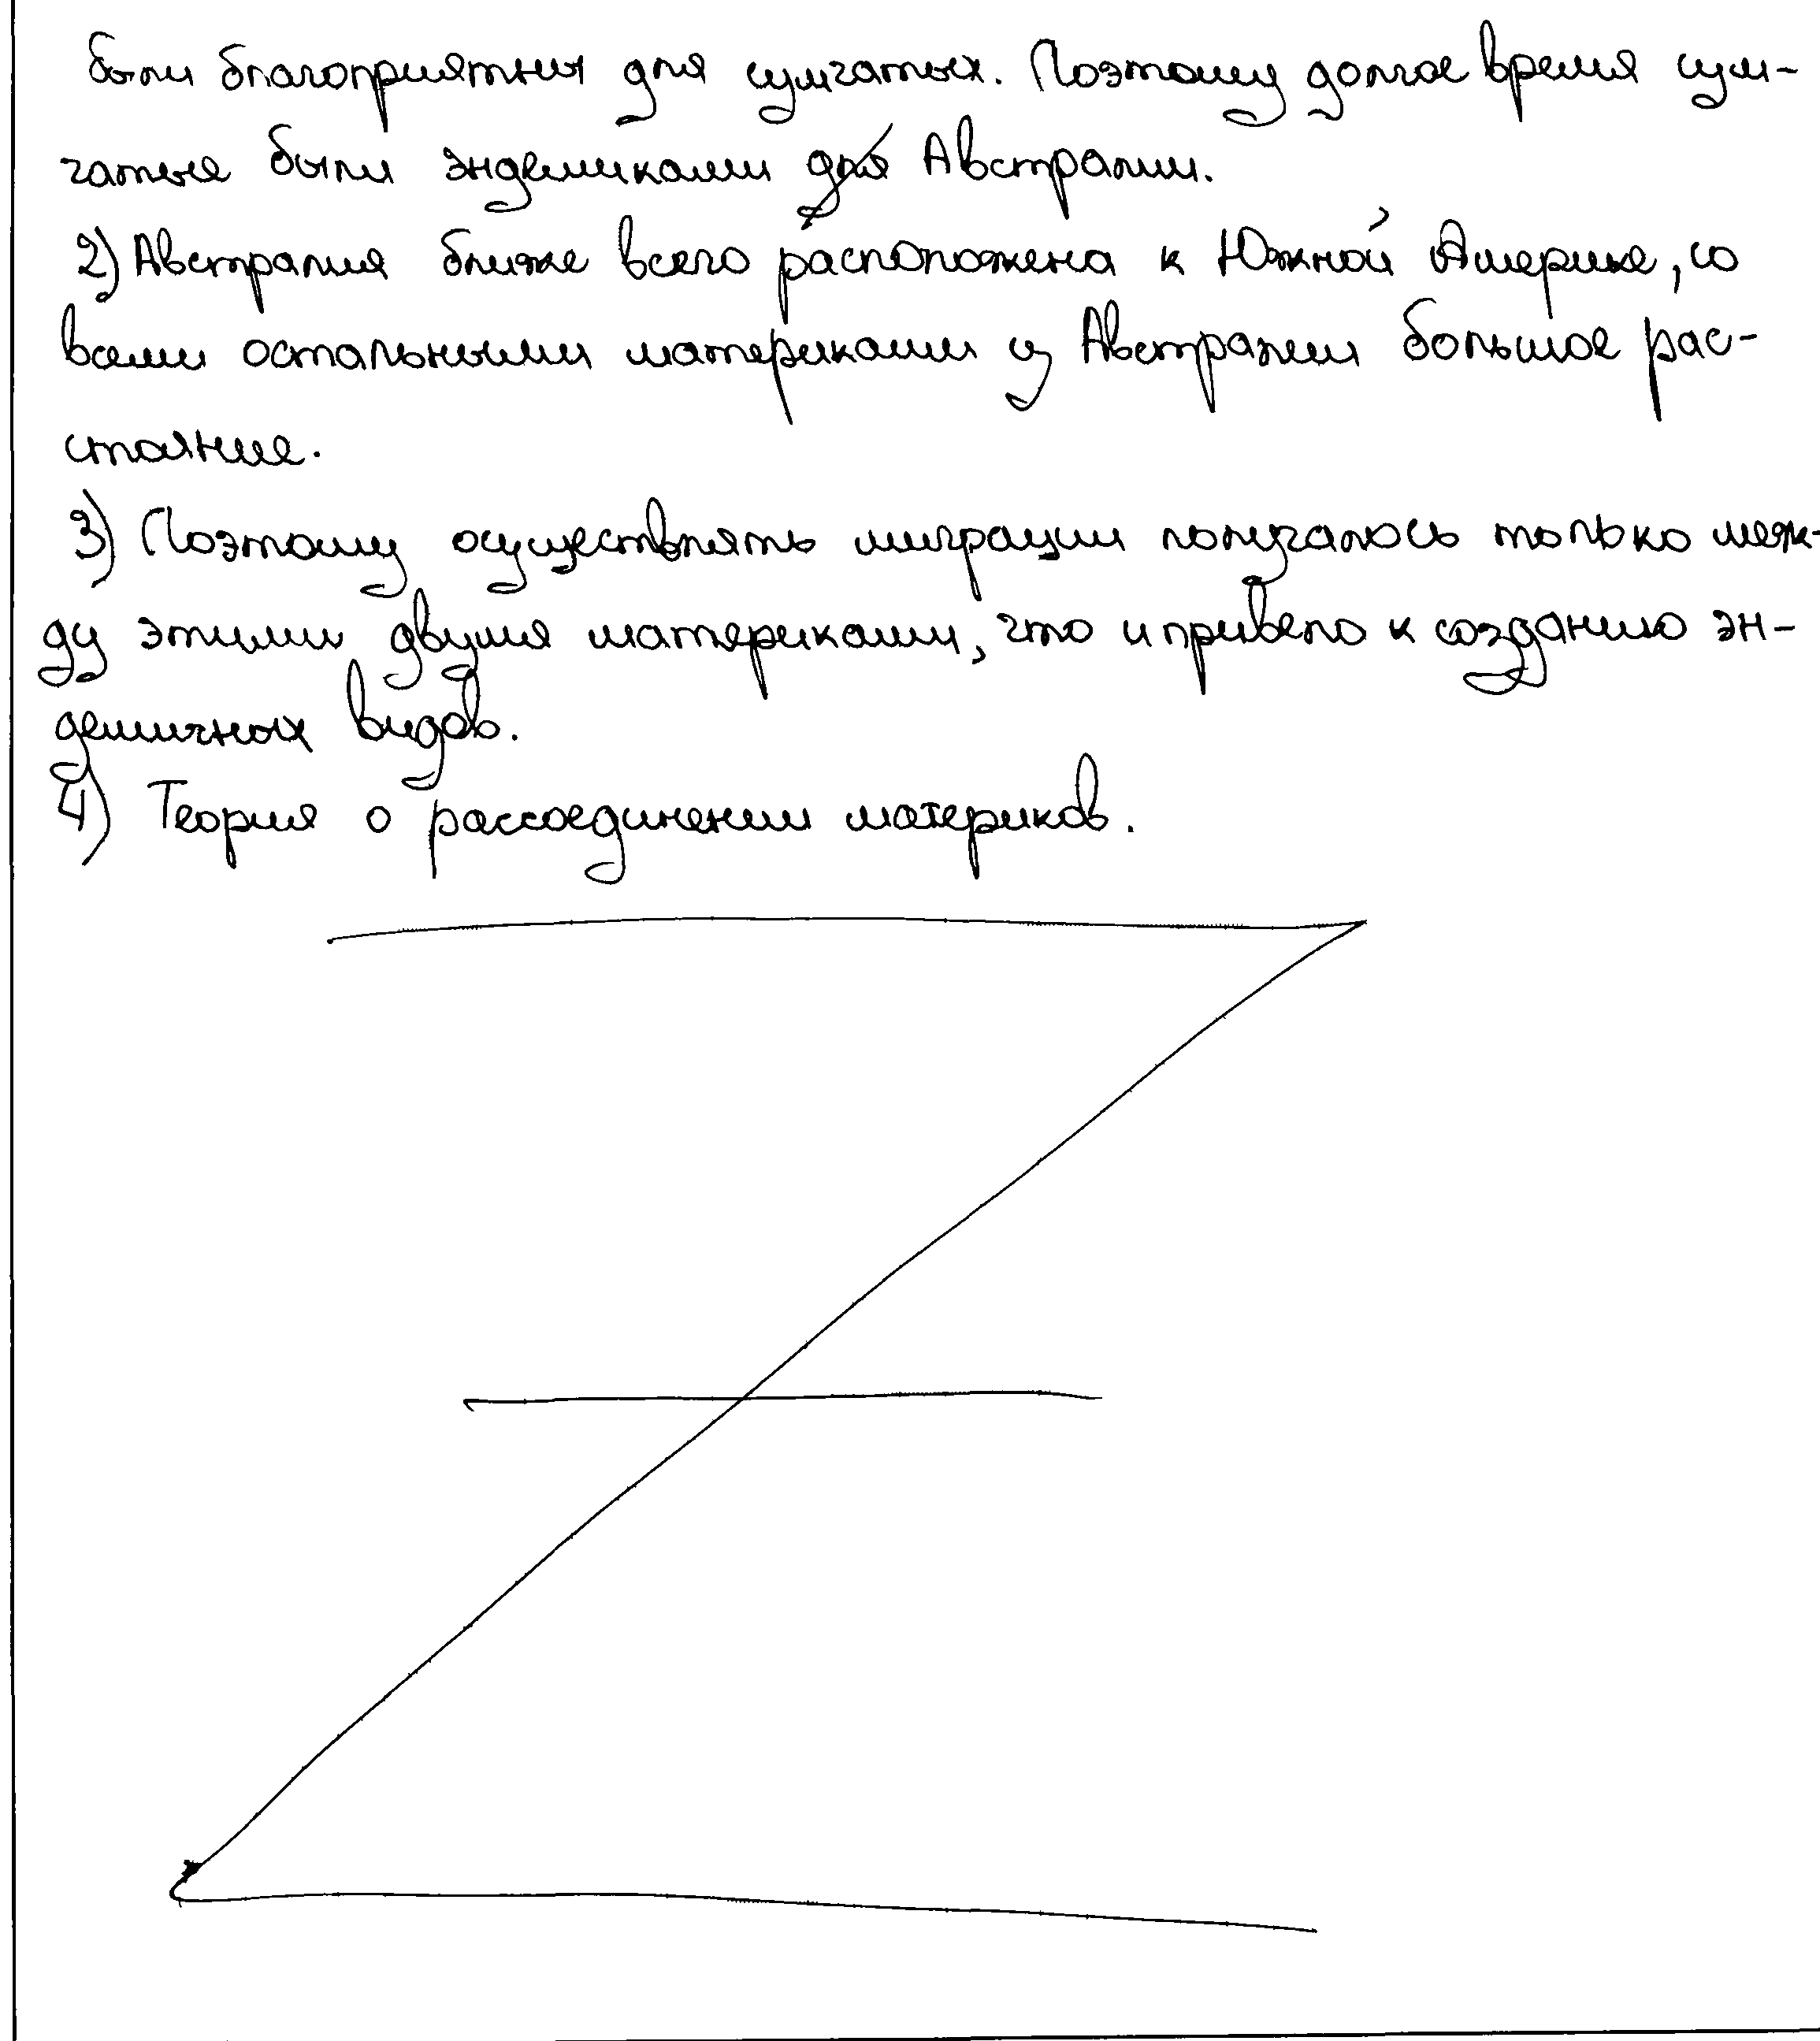 были благоприятны для сумчатых. Поэтому долгое время сум-
чатые были эндемиками для Австралии.
2) Австралия ближе всего расположена к Южной Америке, со
всеми остальными материками у Австралии большое рас-
стояние.
3) Поэтому осуществлять миграции получалось только меж-
ду этими двумя материками, что и привело к созданию эн-
демичных видов.
4) Теория о рассоединении материков.